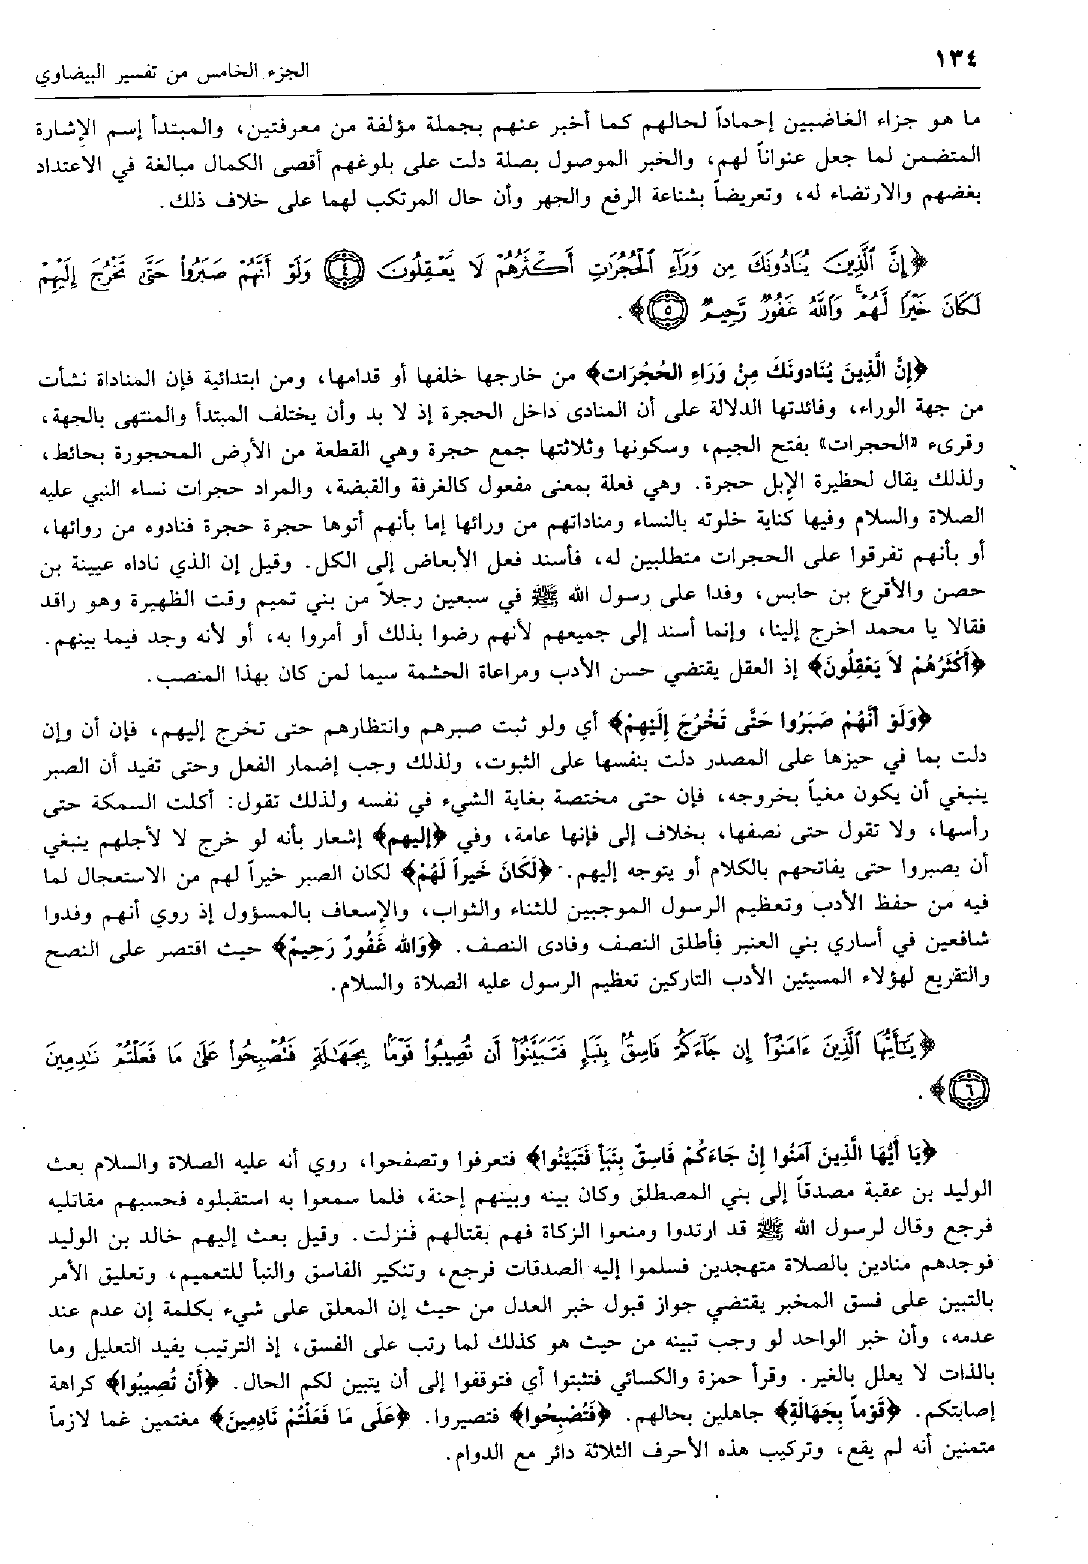 ١٣٤
الجزء الخامس من تفسير البيضاوي
ما هو جزاء الغاضبين إحماداً لحالهم كما أخبر عنهم بجملة مؤلفة من معرفتين، والمبتدأ إسم الإشارة
المتضمن لما جعل عنواناً لهم، والخبر الموصول بصلة دلت على بلوغهم أقصى الكمال مبالغة في الاعتداد
بغضهم والارتضاء له، وتعريضاً بشناعة الرفع والجهر وأن حال المرتكب لهما على خلاف ذلك.
﴿إِنَّ ٱلَّذِينَ يُنَادُونَكَ مِن وَرَآءِ ٱلْحُجُرَٰتِ أَكْثَرُهُمْ لَا يَعْقِلُونَ ﴿٤﴾ وَلَوْ أَنَّهُمْ صَبَرُوا۟ حَتَّىٰ تَخْرُجَ إِلَيْهِمْ
لَكَانَ خَيْرًا لَّهُمْ ۚ وَٱللَّهُ غَفُورٌ رَّحِيمٌ ﴿٥﴾﴾.
﴿إِنَّ الَّذِينَ يُنَادونَكَ مِنْ وَرَاءِ الحُجُرَات﴾ من خارجها خلفها أو قدامها، ومن ابتدائية فإن المناداة نشأت
من جهة الوراء، وفائدتها الدلالة على أن المنادى داخل الحجرة إذ لا بد وأن يختلف المبتدأ والمنتهى بالجهة،
وقرىء «الحجرات» بفتح الجيم، وسكونها وثلاثتها جمع حجرة وهي القطعة من الأرض المحجورة بحائط،
ولذلك يقال لحظيرة الإبل حجرة. وهي فعلة بمعنى مفعول كالغرفة والقبضة، والمراد حجرات نساء النبي عليه
الصلاة والسلام وفيها كناية خلوته بالنساء ومناداتهم من ورائها إما بأنهم أتوها حجرة حجرة فنادوه من روائها،
أو بأنهم تفرقوا على الحجرات متطلبين له، فأسند فعل الأبعاض إلى الكل. وقيل إن الذي ناداه عيينة بن
حصن والأقرع بن حابس، وفدا على رسول الله ﷺ في سبعين رجلاً من بني تميم وقت الظهيرة وهو راقد
فقالا يا محمد اخرج إلينا، وإنما أسند إلى جميعهم لأنهم رضوا بذلك أو أمروا به، أو لأنه وجد فيما بينهم.
﴿أَكْثَرُهُمْ لاَ يَعْقِلُونَ﴾ إذ العقل يقتضي حسن الأدب ومراعاة الحشمة سيما لمن كان بهذا المنصب.
﴿وَلَوْ أَنَّهُمْ صَبَرُوا حَتَّى تَخْرُجَ إِلَيْهِمْ﴾ أي ولو ثبت صبرهم وانتظارهم حتى تخرج إليهم، فإن أن وإن
دلت بما في حيزها على المصدر دلت بنفسها على الثبوت، ولذلك وجب إضمار الفعل وحتى تفيد أن الصبر
ينبغي أن يكون مغياً بخروجه، فإن حتى مختصة بغاية الشيء في نفسه ولذلك تقول: أكلت السمكة حتى
رأسها، ولا تقول حتى نصفها، بخلاف إلى فإنها عامة، وفي ﴿إليهم﴾ إشعار بأنه لو خرج لا لأجلهم ينبغي
أن يصبروا حتى يفاتحهم بالكلام أو يتوجه إليهم. ﴿لَكَانَ خَيراً لَهُمْ﴾ لكان الصبر خيراً لهم من الاستعجال لما
فيه من حفظ الأدب وتعظيم الرسول الموجبين للثناء والثواب، والإسعاف بالمسؤول إذ روي أنهم وفدوا
شافعين في أساري بني العنبر فأطلق النصف وفادى النصف. ﴿وَالله غَفُورٌ رَحِيمٌ﴾ حيث اقتصر على النصح
والتقريع لهؤلاء المسيئين الأدب التاركين تعظيم الرسول عليه الصلاة والسلام.
﴿يَٰٓأَيُّهَا ٱلَّذِينَ ءَامَنُوٓا۟ إِن جَآءَكُمْ فَاسِقٌۢ بِنَبَإٍ فَتَبَيَّنُوٓا۟ أَن تُصِيبُوا۟ قَوْمًۢا بِجَهَٰلَةٍ فَتُصْبِحُوا۟ عَلَىٰ مَا فَعَلْتُمْ نَٰدِمِينَ
﴿٦﴾﴾.
﴿يَا أَيُّهَا الَّذِينَ آمَنُوا إِنْ جَاءَكُمْ فَاسِقٌ بِنَبَأٍ فَتَبَيَّنُوا﴾ فتعرفوا وتصفحوا، روي أنه عليه الصلاة والسلام بعث
الوليد بن عقبة مصدقاً إلى بني المصطلق وكان بينه وبينهم إحنة، فلما سمعوا به استقبلوه فحسبهم مقاتليه
فرجع وقال لرسول الله ﷺ قد ارتدوا ومنعوا الزكاة فهم بقتالهم فنزلت. وقيل بعث إليهم خالد بن الوليد
فوجدهم منادين بالصلاة متهجدين فسلموا إليه الصدقات فرجع، وتنكير الفاسق والنبأ للتعميم، وتعليق الأمر
بالتبين على فسق المخبر يقتضي جواز قبول خبر العدل من حيث إن المعلق على شيء بكلمة إن عدم عند
عدمه، وأن خبر الواحد لو وجب تبينه من حيث هو كذلك لما رتب على الفسق، إذ الترتيب يفيد التعليل وما
بالذات لا يعلل بالغير. وقرأ حمزة والكسائي فتثبتوا أي فتوقفوا إلى أن يتبين لكم الحال. ﴿أَنْ تُصِيبُوا﴾ كراهة
إصابتكم. ﴿قَوْماً بِجَهَالَةٍ﴾ جاهلين بحالهم. ﴿فَتُصْبِحُوا﴾ فتصيروا. ﴿عَلَى مَا فَعَلْتُمْ نَادِمِينَ﴾ مغتمين غما لازماً
متمنين أنه لم يقع، وتركيب هذه الأحرف الثلاثة دائر مع الدوام.